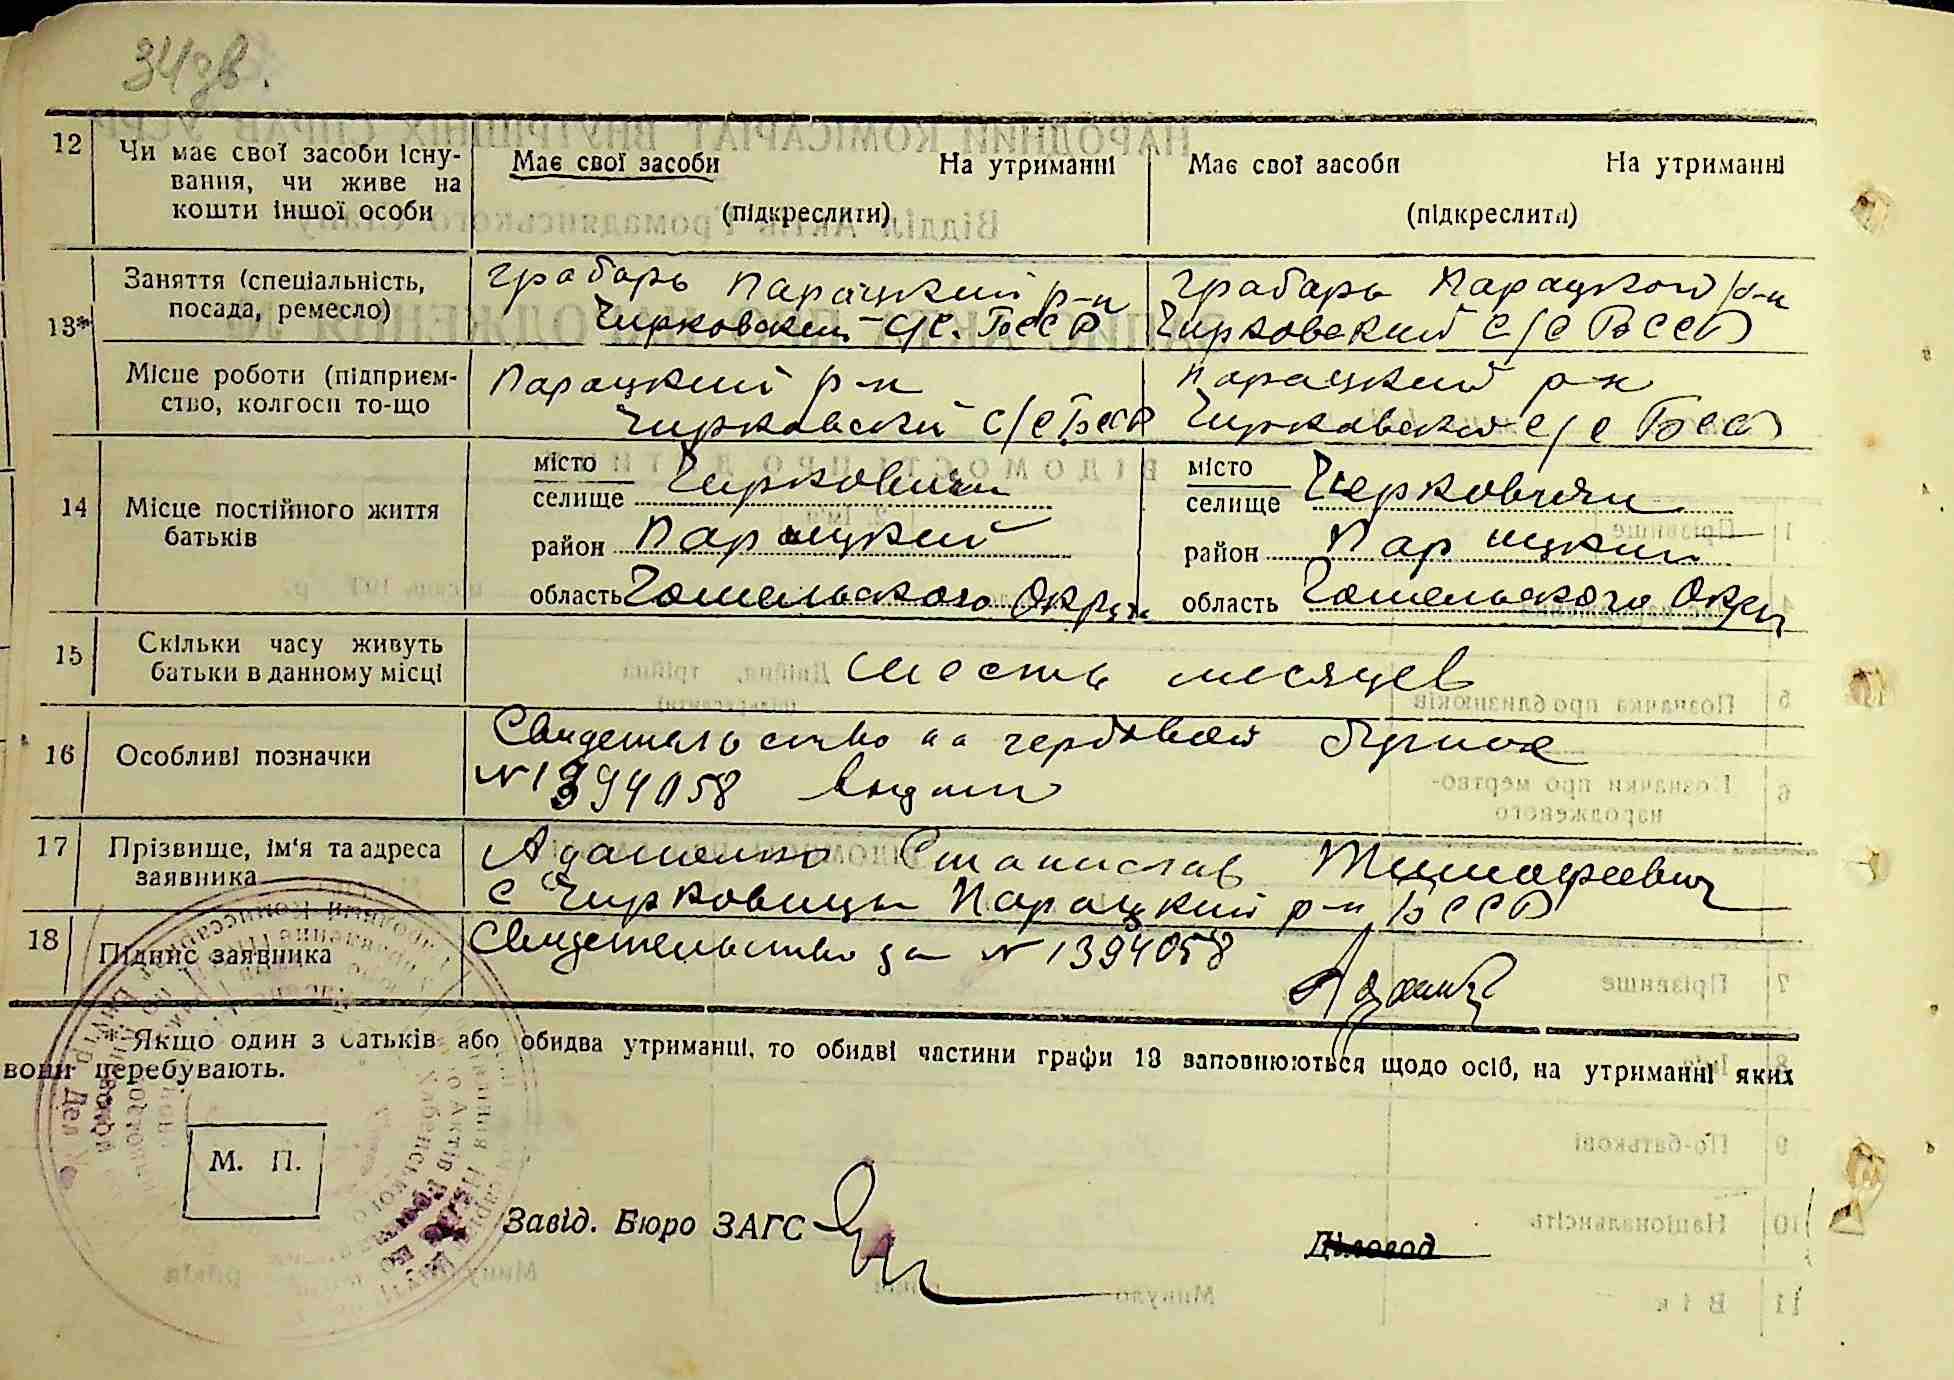 34 зв.
12 Чи має свої засоби існу-
вання, чи живе на
кошти іншої особи
Має свої засоби На утриманні
(підкреслити)
Має свої засоби На утриманні
(підкреслити)
13*
Заняття (спеціальність,
посада, ремесло)
грабарь Парацкий р-н
Чирковский С/С. БССР
грабарь Парацкой р-н
Чирковский С/С БССР
Місце роботи (підприєм-
ство, колгосп то-що
Парацкий р-н
Чирковский С/С БССР
Парацкий р-н
Чирковский С/С БССР
14 Місце постійного життя
батьків
місто
селище Чирковичи
район Парицкий
область Гомельского Окруж
місто
селище Черковичи
район Парицкий
область Гомельского Окру
15 Скільки часу живуть
батьки в данному місці
шесть месяцев
16 Особливі позначки
Свидетельство на гербовой бумаге
№ 1394058 выдано
17 Прізвище, ім'я та адреса
заявника
Адаменко Станислав Тимофеевич
с Чирковицы Парацкий р-н БССР
18 Підпис заявника
Свидетельство за № 1394058
* Якщо один з батьків або обидва утриманці, то обидві частини графи 13 заповнюються щодо осіб, на утриманні яких
вони перебувають.
М. П.
Завід. Бюро ЗАГС
Діловод